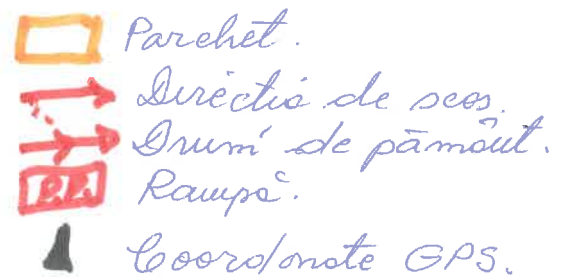 Parchet.
Direcție de scos.
Drum de pământ.
P.P. Rampă.
Coordonate GPS.